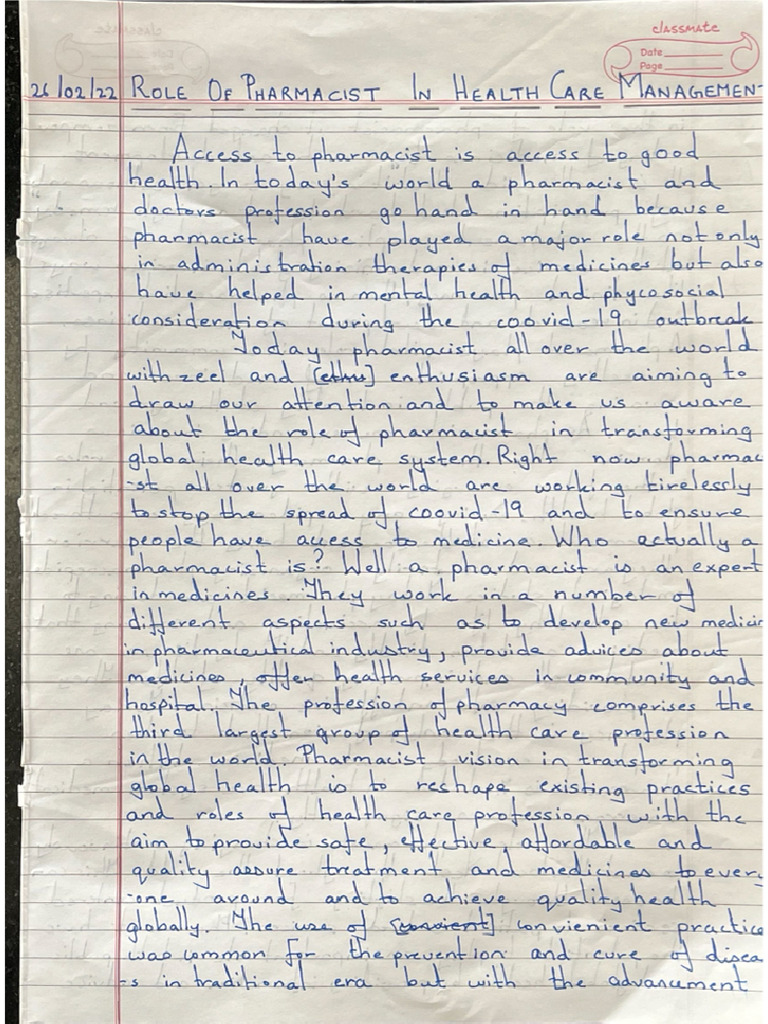 classmate
Date
Page
26/02/22 ROLE OF PHARMACIST IN HEALTH CARE MANAGEMEN
Access to pharmacist is access to good
health. In today's world a pharmacist and
doctors profession go hand in hand because
pharmacist have played a major role not only
in administration therapies of medicines but also
have helped in mental health and phycosocial
consideration during the coovid-19 outbreak
Today pharmacist all over the world
with zeel and [ethus] enthusiasm are aiming to
draw our attention and to make us aware
about the role of pharmacist in transforming
global health care system. Right now pharmac
-st all over the world are working tirelessly
to stop the spread of coovid-19 and to ensure
people have access to medicine. Who actually a
pharmacist is? Well a pharmacist is an expert
in medicines. They work in a number of
different aspects such as to develop new medicin
in pharmaceutical industry, provide advices about
medicines, offer health services in community and
hospital. The profession of pharmacy comprises the
third largest group of health care profession
in the world. Pharmacist vision in transforming
global health is to reshape existing practices
and roles of health care profession with the
aim to provide safe, effective, affordable and
quality assure treatment and medicines to every
-one around and to achieve quality health
globally. The use of convienient practice
was common for the prevention and cure of disea
-s in traditional era but with the advancement